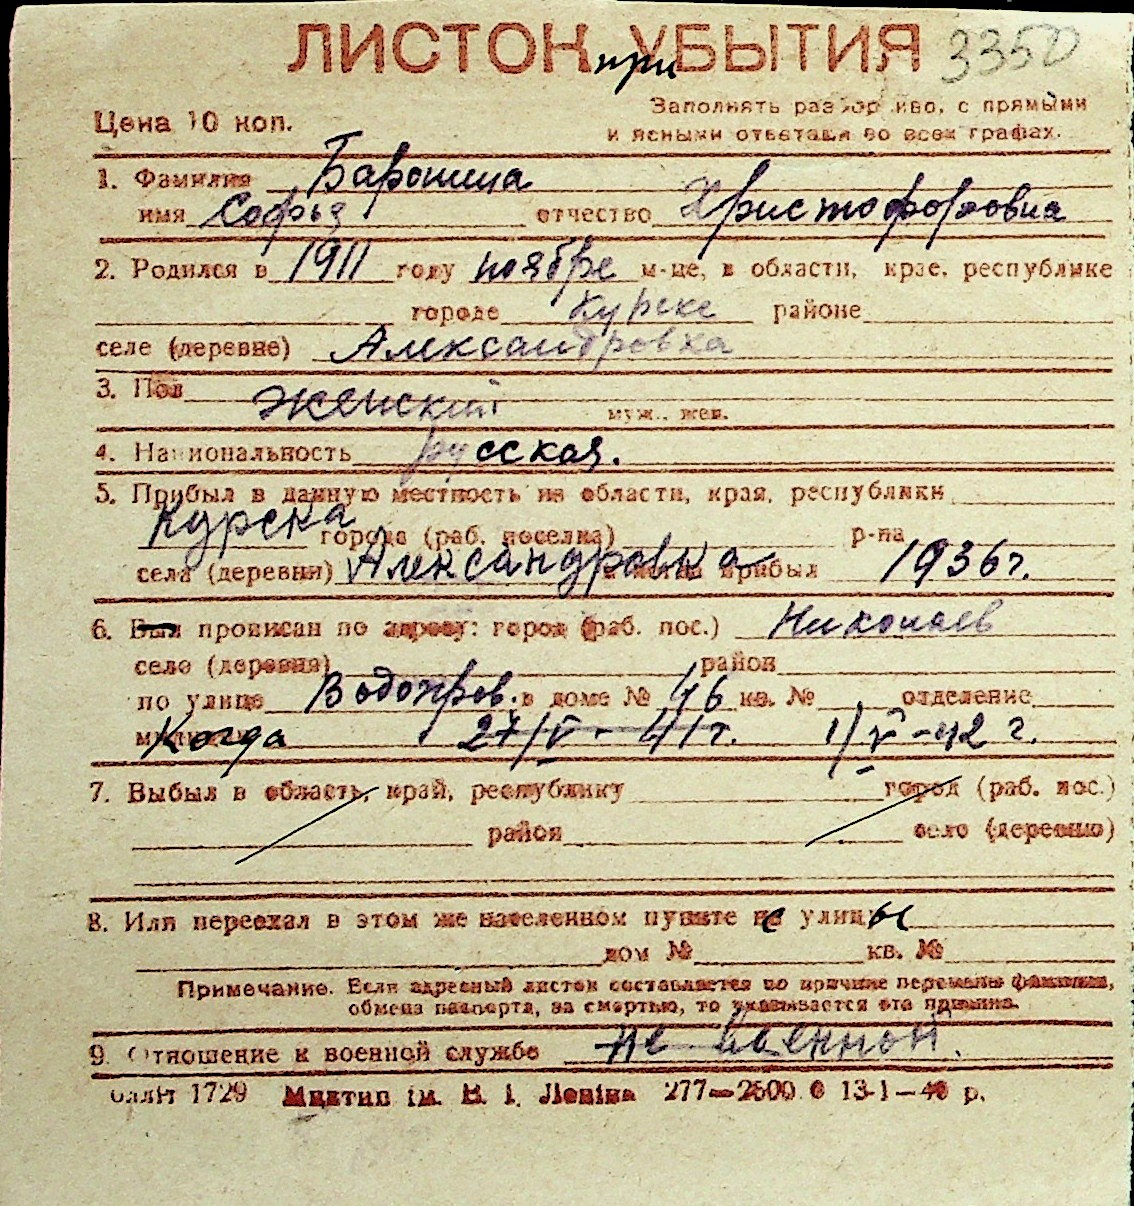 ЛИСТОК при УБЫТИЯ 3350
Цена 10 коп.
Заполнять разборчиво, с прямыми
и ясными ответами во всех графах.
1. Фамилия
имя Софья отчество Христофоровна
2. Родился в 1911 году ноябре м-це, в области, крае, республике
городе Курске районе
селе (деревне) Александровка
3. Пол женский муж., жен.
4. Национальность русская.
5. Прибыл в данную местность из области, края, республики
Курска города (раб. поселка) р-на
села (деревни) Александровка и когда прибыл 1936 г.
6. Был прописан по адресу: город (раб. пос.) Николаев
село (деревня) район
по улице Водопров. в доме № 46 кв. № отделение
Когда 27/V - 41 г. 1/V - 42 г.
7. Выбыл в область, край, республику город (раб. пос.)
район село (деревню)
8. Или переехал в этом же населенном пункте с улицы
дом № кв. №
Примечание. Если адресный листок составляется по причине перемены фамилии,
обмена паспорта, за смертью, то указывается эта причина.
9. Отношение к военной службе не военной.
1729 Миктип ім. В. І. Леніна 277—2500 13-1—40 р.